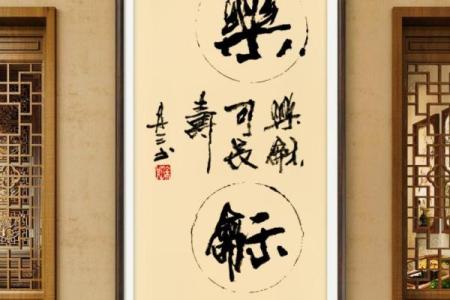 樂
樂龢
可長
壽
龢